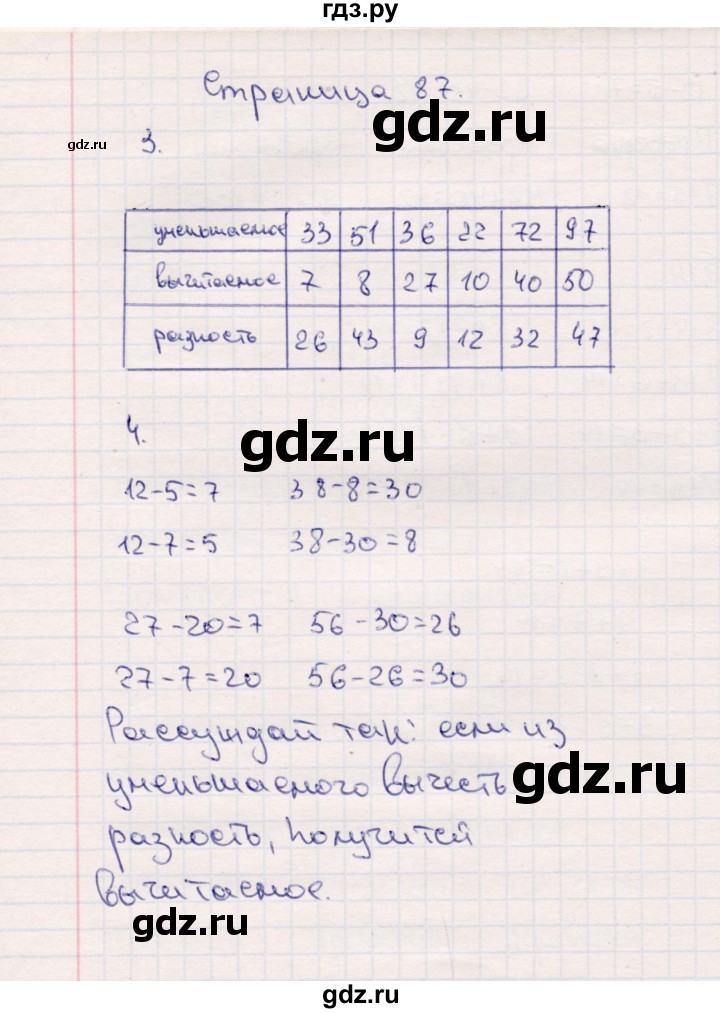 гдз.ру
Страница 87.
gdz.ru
gdz.ru
3.
уменьшаемое 33 51 36 22 72 97
вычитаемое 7 8 27 10 40 50
разность 26 43 9 12 32 47
4.
gdz.ru
12-5=7 38-8=30
12-7=5 38-30=8
27-20=7 56-30=26
27-7=20 56-26=30
Рассуждай так: если из
уменьшаемого вычесть
gdz.ru
разность, получится
вычитаемое.
gdz.ru
gdz.ru